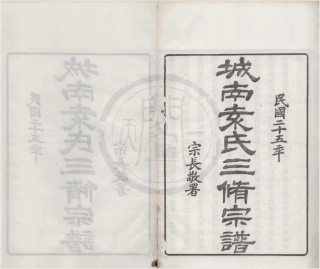 民國二十五年
城南袁氏三脩宗譜
宗長敬署